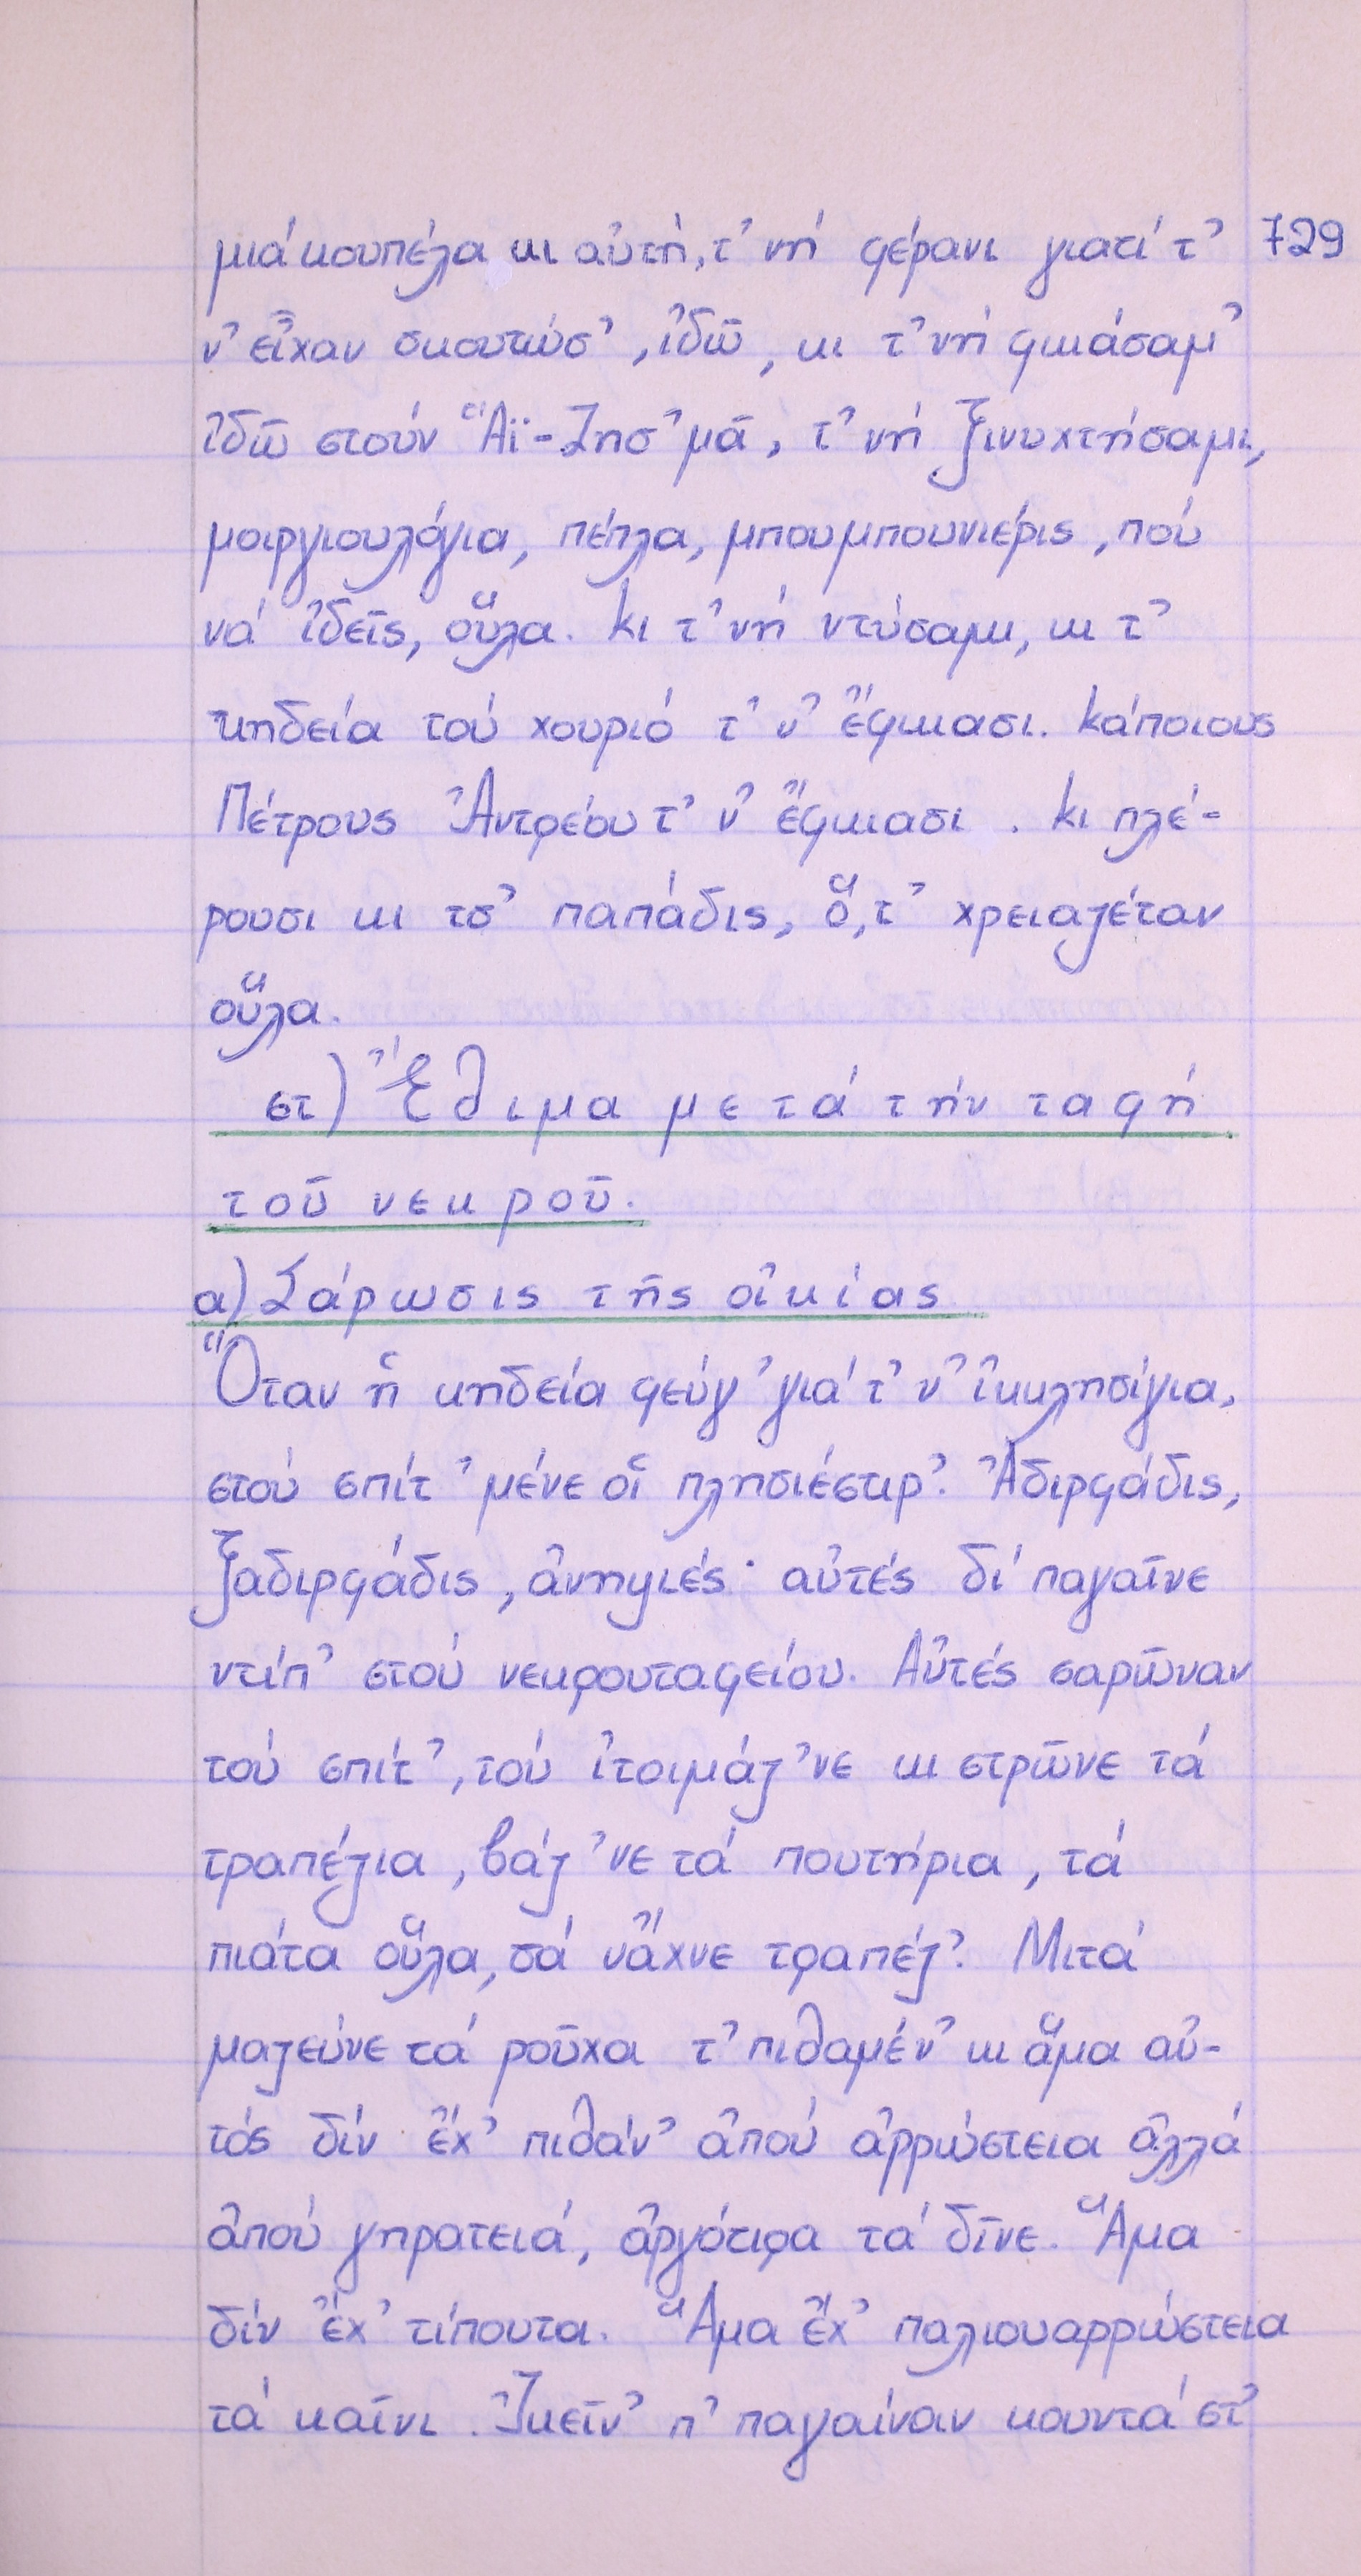 μιά κουπέλα κι αὐτή, τ' νή φέρανι γιατί τ' 729
ν' εἶχαν σκουτώσ', ἰδῶ, κι τ' νή φκιάσαμ'
ἰδῶ στούν Ἅϊ-Ζησ'μᾶ, τ' νή ξινυχτήσαμι,
μοιργιουλόγια, πέπλα, μπουμπουνιέρις, πού
νά ἰδεῖς, οὕλα. κι τ' νή ντύσαμι, κι τ'
κηδεία τού χουριό τ' ν' ἔφκιασι. κάποιους
Πέτρους Ἀντρέου τ' ν' ἔφκιασι. κι πλέ-
ρουσι κι τσ' παπάδις, ὅ,τ' χρειαζέταν
οὕλα.
στ) Ἔθιμα μετά τήν ταφή
τοῦ νεκροῦ.
α) Σάρωσις τῆς οἰκίας
Ὅταν ἡ κηδεία φεύγ' γιά τ' ν' ἰκκλησίγια,
στού σπίτ' μένε οἱ πλησιέστιρ'. Ἀδιρφάδις,
ξαδιρφάδις, ἀνηψιές· αὐτές δί παγαῖνε
ντίπ' στού νεκρουταφείου. Αὐτές σαρῶναν
τού σπίτ', τού ἰτοιμάζ'νε κι στρῶνε τά
τραπέζια, βάζ'νε τά πουτήρια, τά
πιάτα οὕλα, σά νἄχνε τραπέζ'. Μιτά
μαζεύνε τά ροῦχα τ' πιθαμέν' κι ἅμα αὐ-
τός δίν ἔχ' πιθάν' ἀπού ἀρρώστεια ἀλλά
ἀπού γηρατειά, ἀργότιρα τά δῖνε. Ἅμα
δίν ἔχ' τίπουτα. Ἅμα ἔχ' παλιουαρρώστεια
τά καῖνι. Ἰκεῖν' π' παγαίναν κουντά στ'